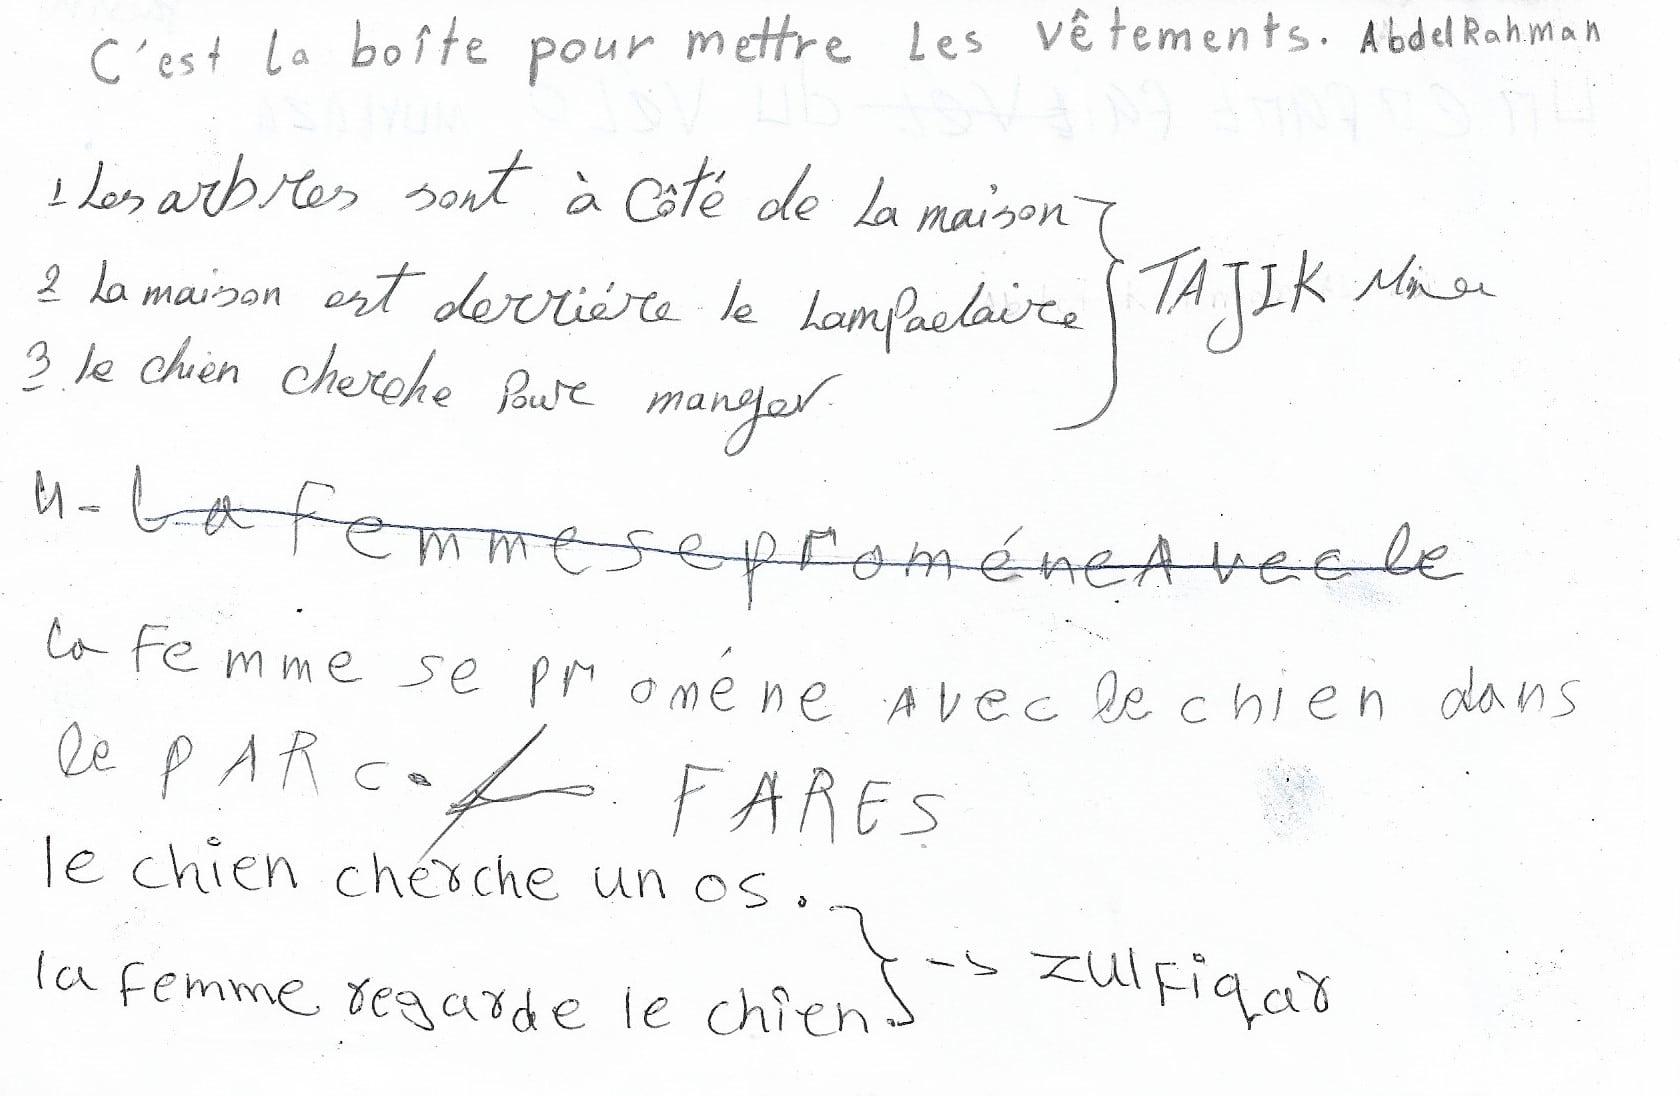 C'est la boîte pour mettre Les vêtements. AbdelRahman
1 Les arbres sont à Côté de La maison
2 La maison est derriére le Lampaelaire
TAJIK
3 le chien cherche Poure manger.
4- La femme se proméne Avec le
la Femme se proméne Avec le chien dans
le pARc. FARES
le chien cherche un os.
la femme regarde le chien. -> zulFiqar